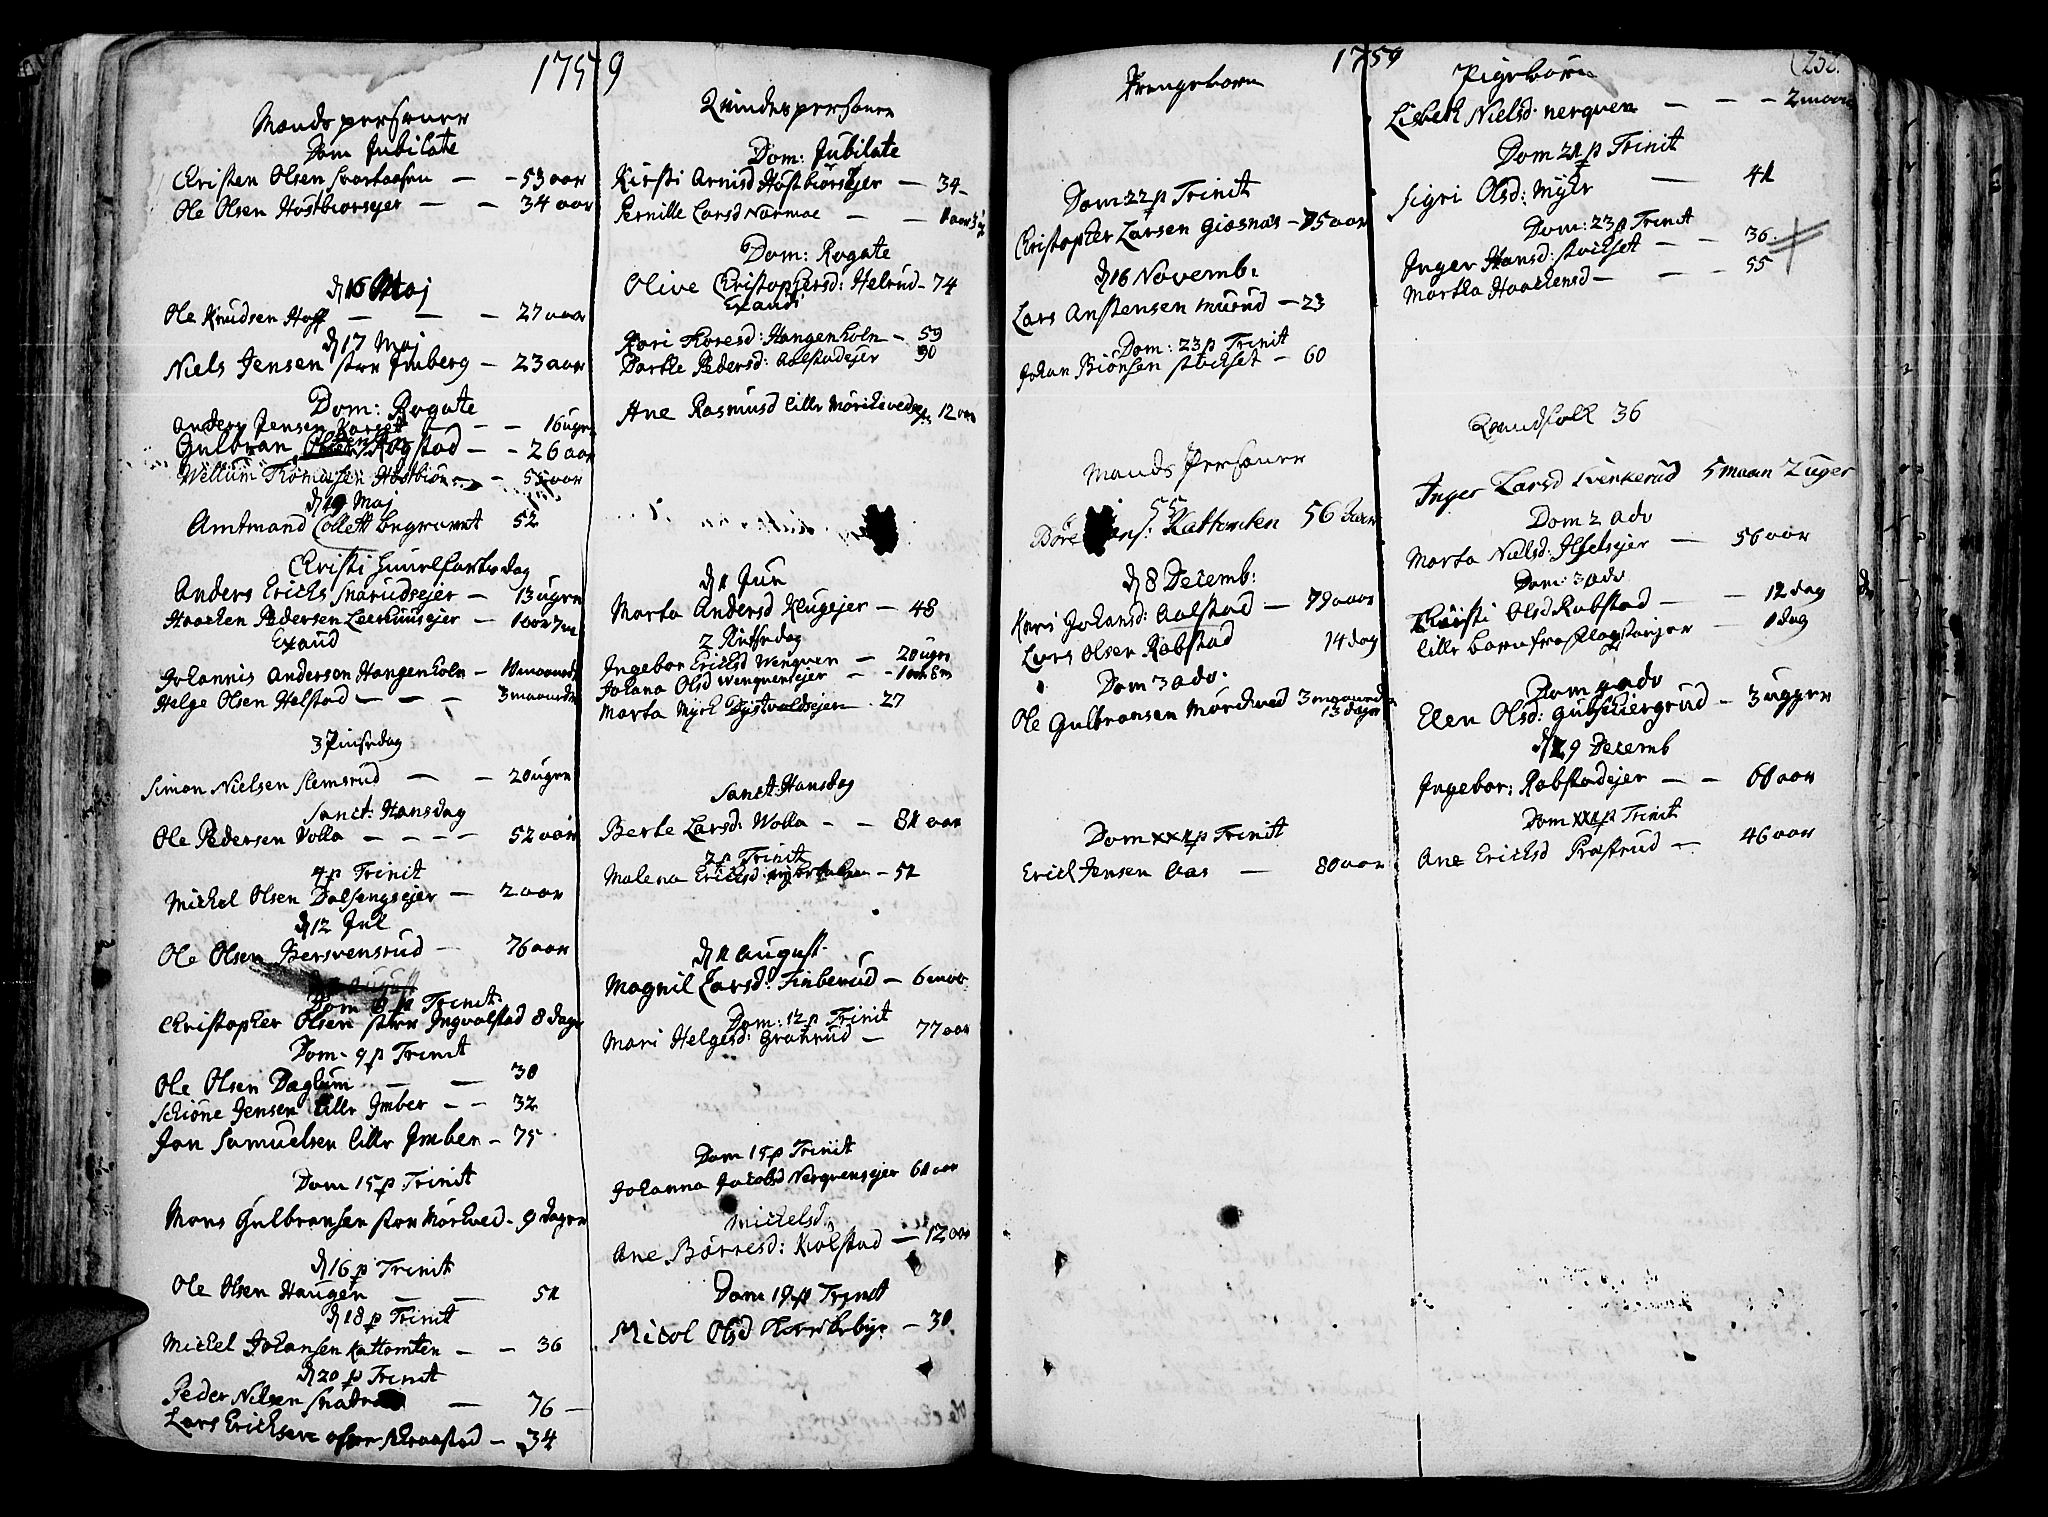 1759
Mandspersoner
Dom Jubilate
Christen Olsen Svartaasen — - 53 aar
Ole Olsen Hostbiorsejer — - 34 aar
d 15 Maj
Ole Knudsen Hoff — — - 27 aar
d 17 Maj
Niels Jensen stor Imberg - 23 aar
Dom: Rogate
Anders Jensen - - 16 ugr
Gulbran Rogstad - - 26 aar
Wellum Thomasen Hostbior - 55 aar
d 19 Maj
Amtmand Collett begravet 52
Christi Himelfartsdag
Anders Erichs Snarudsejer - 13 ugr
Haaken Pedersen - 1 aar 7 m
Exaud
Johannis Anderson Hangenholn - maaneder
Helge Olsen Helstad - - - 3 maaneder
3 Pinsedag
Simon Nielsen Slemsrud — - 20 ugr
Sanct: Hansdag
Ole Pedersen Volla - - - - 52 aar
4 p Trinit
Michel Olsen Dalsengsejer - 2 aar
d 12 Jul
Ole Olsen Bersvensrud — 76 aar
Dom 8 p Trinit:
Christopher Olsen stor Ingvalstad 8 dage
Dom- 9 p Trinit
Ole Olsen Daglum — — 30
Schiöne Jensen lille Imber - - 32
Jon Samuelsen lille Imber - 75
Dom 15 p Trinit
Mons Gulbransen stor Morkved - 9 dager
d 16 p Trinit
Ole Olsen Haugen — — 51
d 18 p Trinit
Michel Johansen Kattomten - - 36
d 20 p Trinit
Peder Nilsen — 76 —
Lars Erichsen - 34
Quindespersoner
Dom: Jubilate
Kirsti Arnisd Hostbiorsejer — 34 -
Pernille Larsd Narmoe - -
Dom: Rogate
Olive Christophersd: Helrud - 74
Exaudi
Jori Thoresd: Hangenholn - 59
Dorthe Pedersd: Aalstadejer 90
Ane Rasmusd lille 12 aar
d 1 Jun
Marta Andersd Klugejer — 48
2 Pintsedag
Ingebor Erichsd Wenquen — 20 ugr
Johana Olsd Wenquensejer — - 1 aar 8 m
Marta Myrh . 27
Sanct: Hansdag
Berte Larsd: Wolla - - 81 aar
7 p Trinit
Malena Erichsd: - 51
d 1 August
Magnil Larsd: Finberud - 6 maa
Dom: 12 p Trinit
Mari Helgesd: Granrud — 77 aar
Dom 15 p Trinit
Johanna Jacobsd Nerquensejer 61 aar
Michelsd:
Ane Börresd: Kiolstad — 12 aar
Dom 19 p Trinit
Nicol Olsd - 30
1759
Drengeborn
Dom 22 p Trinit
Christopher Larsen Giosnas - 75 aar
d 16 Novemb:
Lars Anstensen Murud - 23
Dom: 23 p Trinit
Johan Biönsen Stochset - 60
Mands Personer
55
Börre Kattomten 56 aar
d 8 Decemb:
Kari Johansd: Aalstad — 79 aar
Lars Olsen Rabstad 14 dag
Dom 3 adv.
Ole Gulbransen Morchved 3 maaneder
13 dager
Dom XX p Trinit
Erich Jensen Aas — 80 aar
Pigeborn
252.
Lisbeth Nielsd: nerquen — - - 2 maa
Dom 21 p Trinit
Sigri Olsd: Myhr — 41
Dom: 23 p Trinit
Inger Hansd: Stochset - - 36
Martha Haachensd - - - 55
Quindfolk 36
Inger Larsd Svenkerud 5 maan 2 uger
Dom 2 adv
Marta Nielsd: — 56 aar
Dom: 3 adv
Olsd Rabstad — - 12 dag
lille barn fra - 1 dag
Dom 4 adv
Elen Olsd: - 3 ugger
d 29 Decemb
Ingebor: Rabstadejer — - 60 aar
Dom XX p Trinit
Ane Erichsd Prastrud — 46 aar